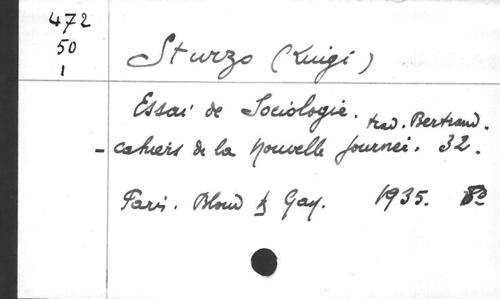 472
50
1
Sturzo (Luigi)
Essai de Sociologie. trad. Bertrand.
- cahiers de la Nouvelle Journéi. 32.
Paris. Bloud & Gay. 1935. 8º